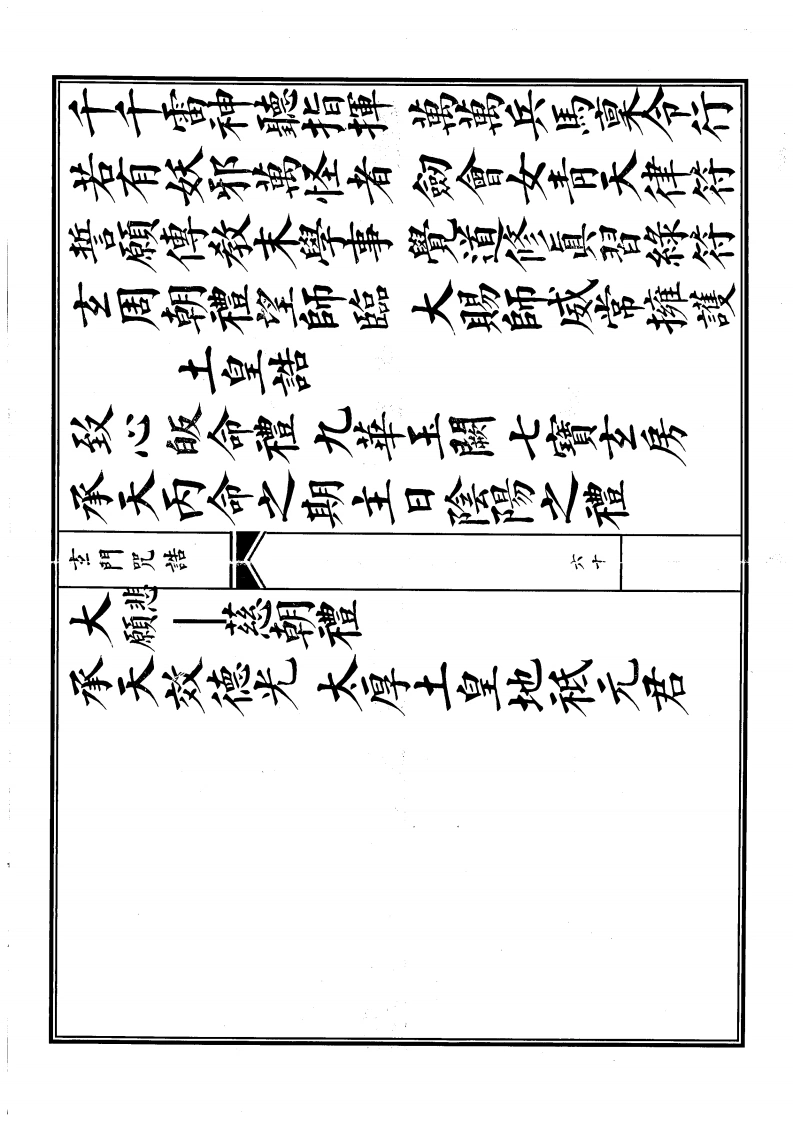 千千雷神聽指揮 萬萬兵馬稟令行
若有妖邪萬怪者 劍會女青天律符
誓願傳教末學事 覺道修眞習綠符
玄周朝禮望師臨 大賜師威常擁護
土皇誥
致心皈命禮 九華玉闕七寶玄房
承天丙命之期主日陰陽之禮
玄門咒誥 六十
大悲願一慈朝禮
承天效德光 太厚土皇地祇元君